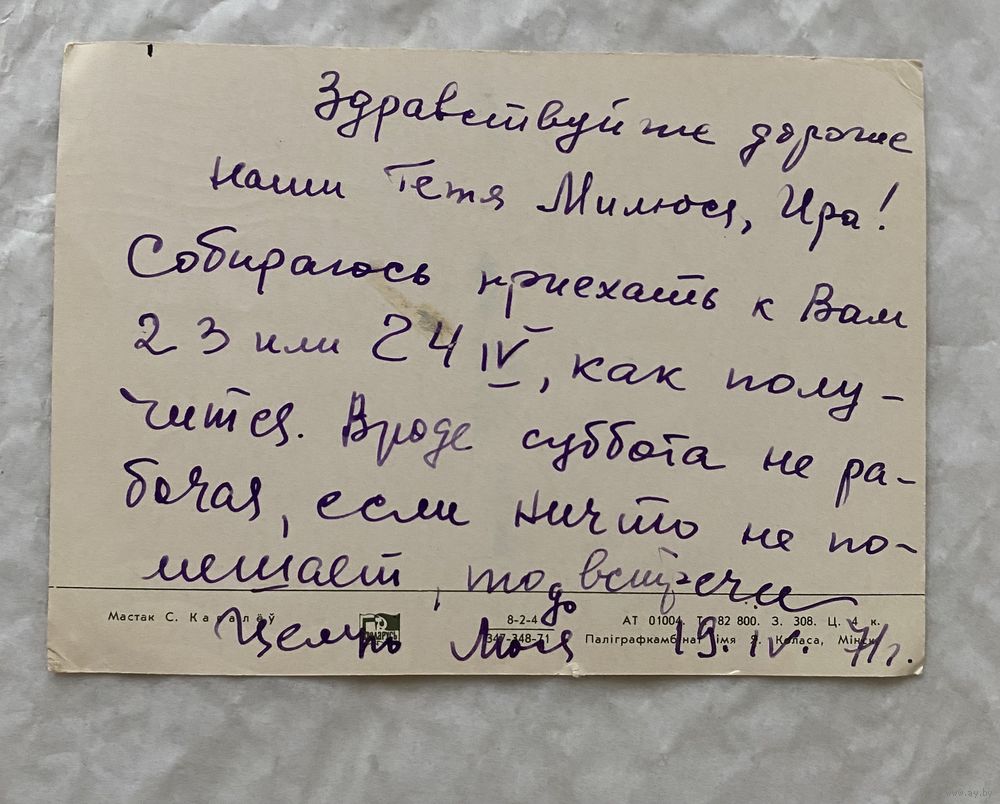 Здравствуйте дорогие
наши Тетя Милюся, Ира!
Собираюсь приехать к Вам
23 или 24 IV, как полу-
чится. Вроде суббота не ра-
бочая, если ничто не по-
мешает, то до встречи
Мастак С. К
БЕЛАРУСЬ
8-2-4
347-348-71
АТ 01004. Т. 82 800. З. 308. Ц. 4 к.
Паліграфкамбінат імя Я. Коласа, Мінск
Целую Люся 19.IV.71г.
www.ay.by